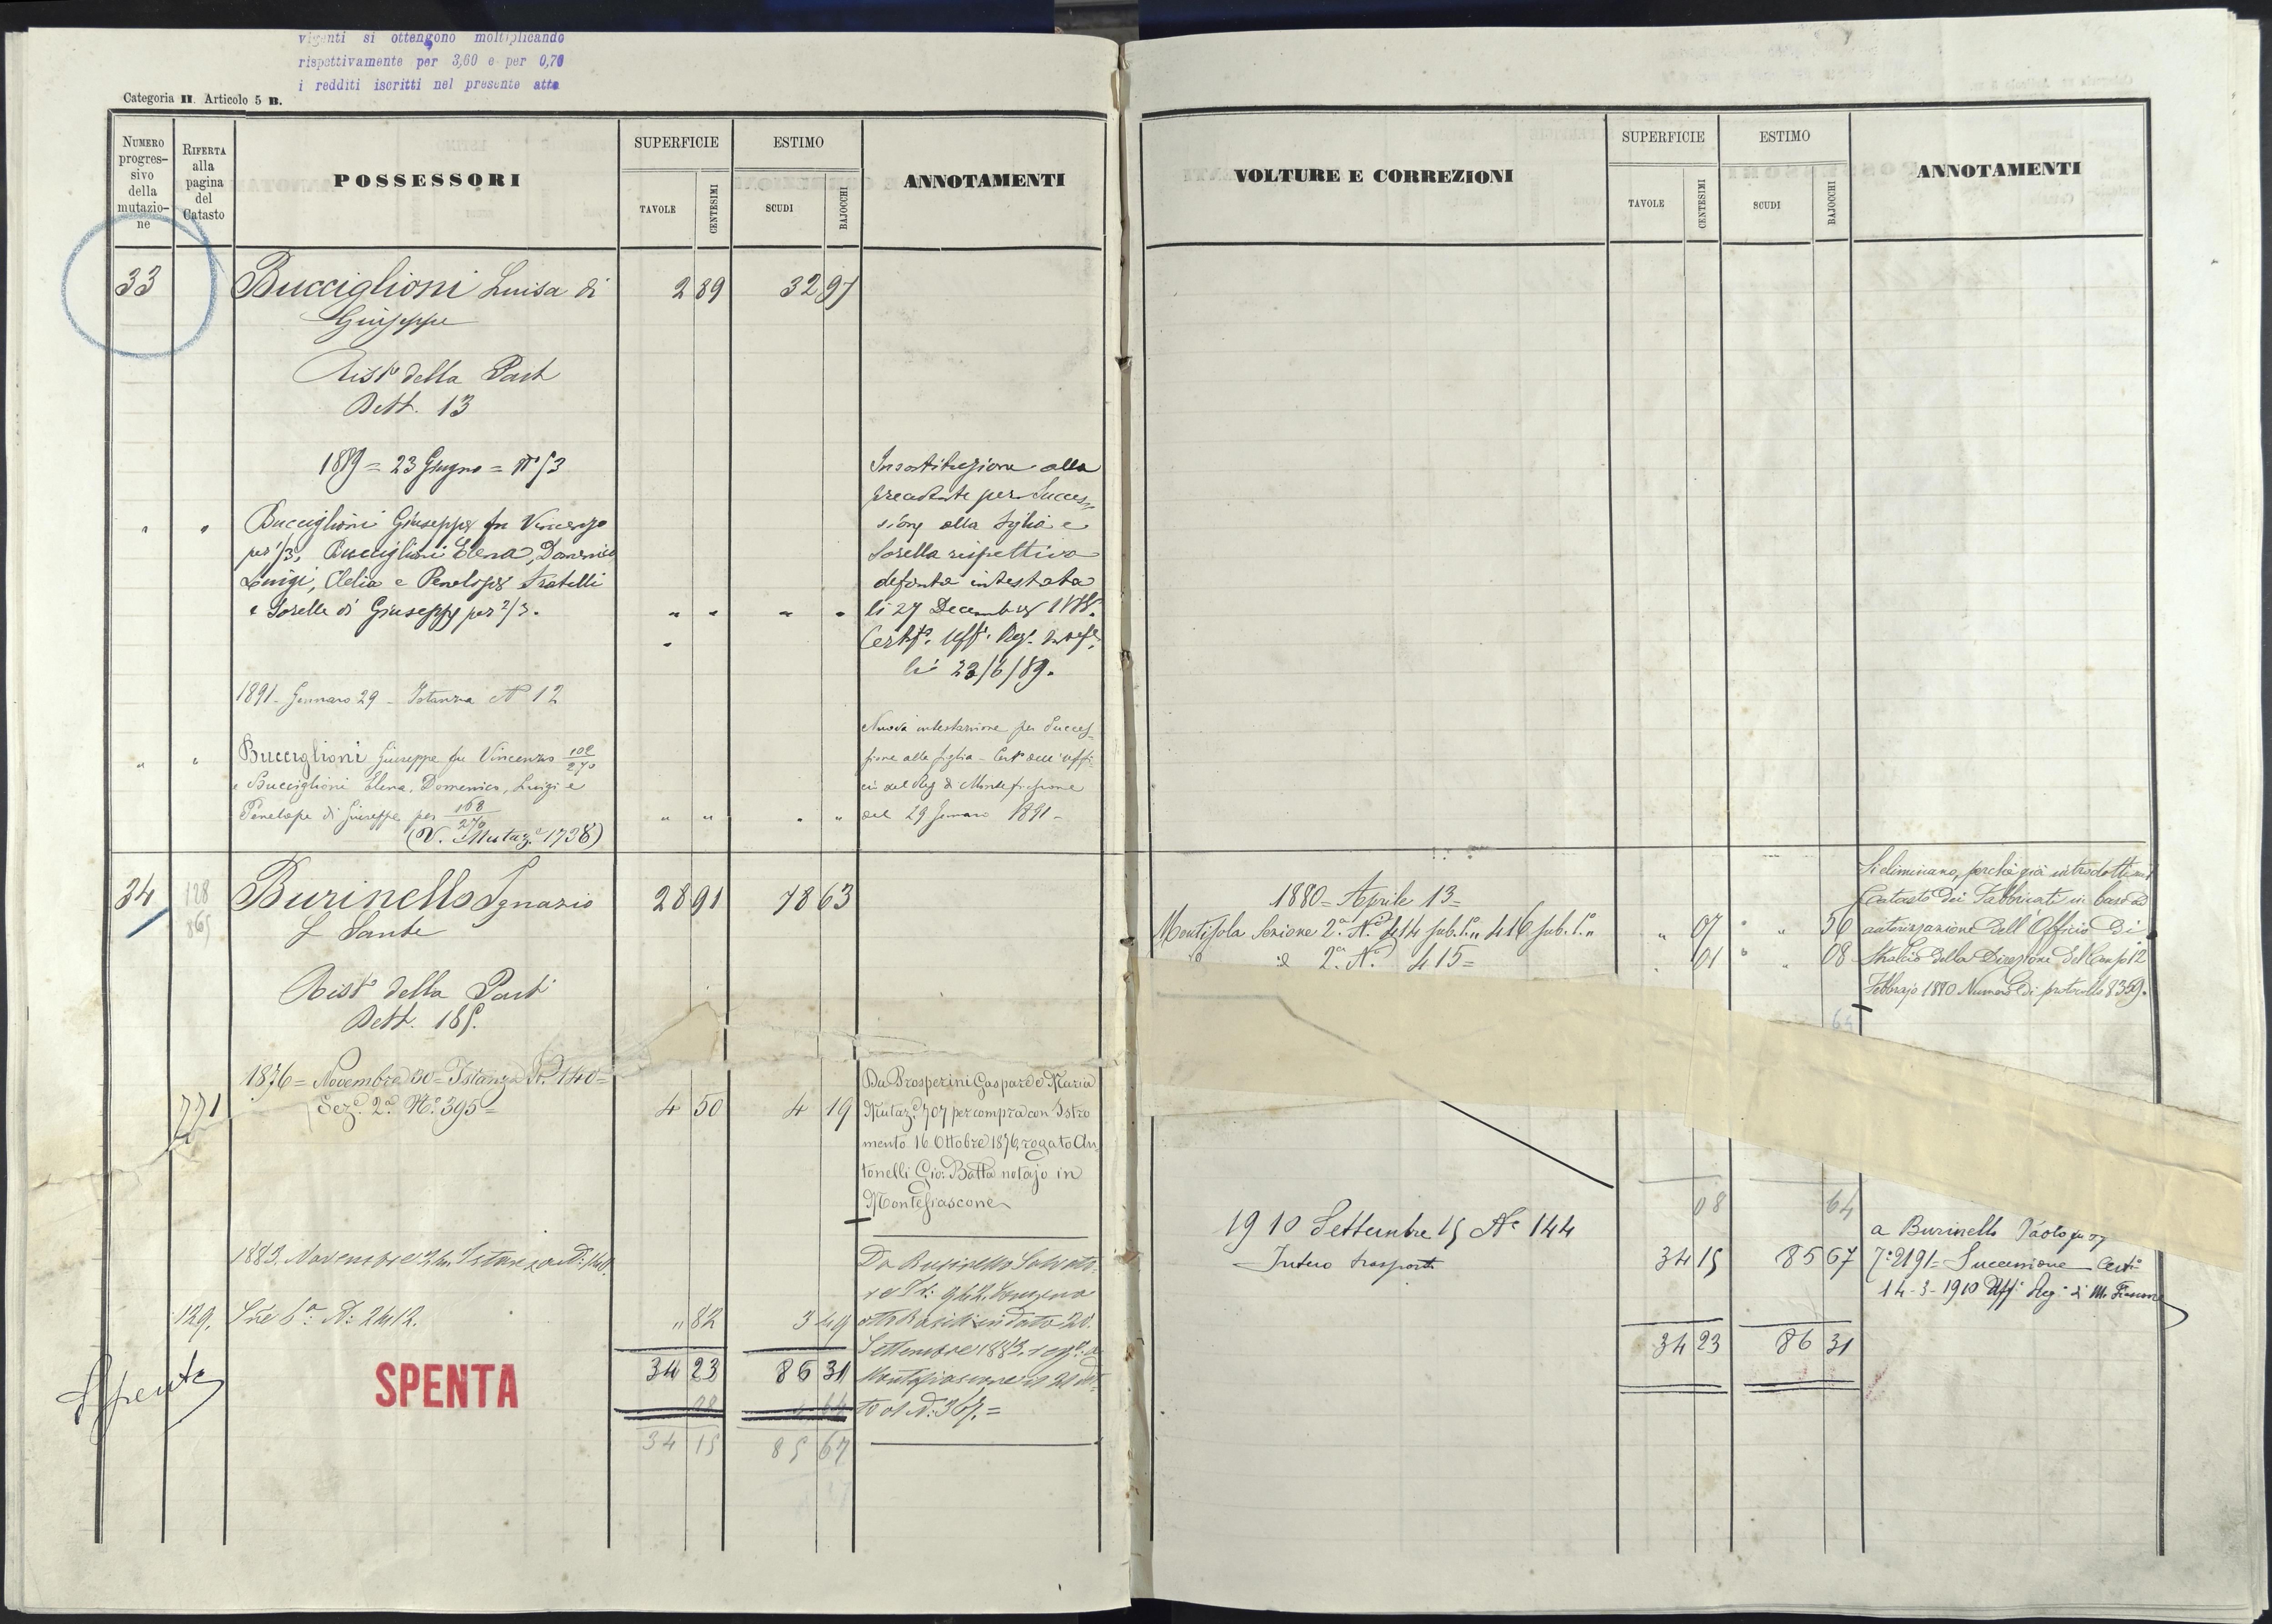 vigenti si ottengono moltiplicando
rispettivamente per 3,60 e per 0,70
i redditi iscritti nel presente atto
Categoria II. Articolo 5 B.
NUMERO progres-sivo della mutazio-ne
RIFERTA alla pagina del Catasto
POSSESSORI
SUPERFICIE
TAVOLE
CENTESIMI
ESTIMO
SCUDI
BAJOCCHI
ANNOTAMENTI
33 Bucciglioni Luisa di 2 89 32 97
Giuseppe
Rist.o della Part.
Dett. 13
1889 = 23 Giugno = N° 53
" " Bucciglioni Giuseppe fu Vincenzo
per 1/3, Bucciglioni Elena, Domenico
Luigi, Clelia e Penelope fratelli
e Sorelle di Giuseppe per 2/3. " " " "
In sostituzione alla
precedente per Succes-
sione alla figlia e
Sorella rispettiva
defunta intestata
li 27 Decembre 1888.
Certif.o Uff.o Reg.
li 23/6/89.
1891 - Gennaro 29 - Istanza N° 12
" " Bucciglioni Giuseppe fu Vincenzo 102/270
e Bucciglioni Elena, Domenico, Luigi e
Penelope di Giuseppe per 168/270 " " " "
(V. Mutaz.e 1738)
Nuova intestazione per Succes-
sione alla figlia - Cert.o dell'Uffi-
cio del Reg di Montefiascone
del 29 Gennaro 1891 -
34 128 Burinello Ignazio 28 91 78 63
865 Sante
Rist.o della Part.
Dett. 185.
1876 = Novembre 30 = Istanza N. 140 =
771 Sez.e 2.a N.o 395 = 4 50 4 19
Da Prosperini Gaspare e Maria
Mutaz.e 707 per compra con Istro
mento 16 Ottobre 1876, rogato An
tonelli Gio: Batta notajo in
Montefiascone
1883. Novembre 24. Istanza N:
129. Sez 6.a N: 2412. " 82 3 49
Da Burinello Salvato-
re
in data 20.
Settembre 1883.
Montefiascone
to al N: 367. =
34 23 86 31
08 64
34 15 85 67
Spenta
SPENTA
VOLTURE E CORREZIONI
SUPERFICIE
TAVOLE
CENTESIMI
ESTIMO
SCUDI
BAJOCCHI
ANNOTAMENTI
1880 = Aprile 13 =
Montisola Sezione 2.a N.i 414 sub. 1. " 416 sub. 1. " " 07 " " 56
id 2.a N. 415 = " 01 " " 08
Si eliminano, perchè già introdotti nel
Catasto dei Fabbricati in base ad
autorizzazione dell'Officio di
Stralcio della Direzione del Censo 12
Febbrajo 1880 Numero di protocollo 8359.
64
08 64
1910 Settembre 15 N° 144
Intero trasporto 34 15 85 67
a Burinello Paolo fu
2191 = Successione Cert.o
14-3-1910 Uff. Reg. di M. Fiascone
34 23 86 31